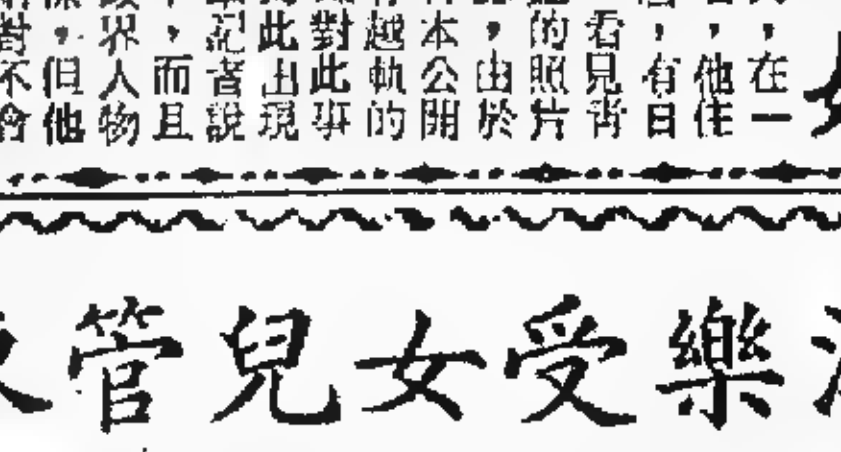 ，在一
，他住
，有日
看見
的照片
，由於
本公開
越軌的
對此事
此出現
記者說
，而且
界人物
，但他
對不會
樂受女兒管